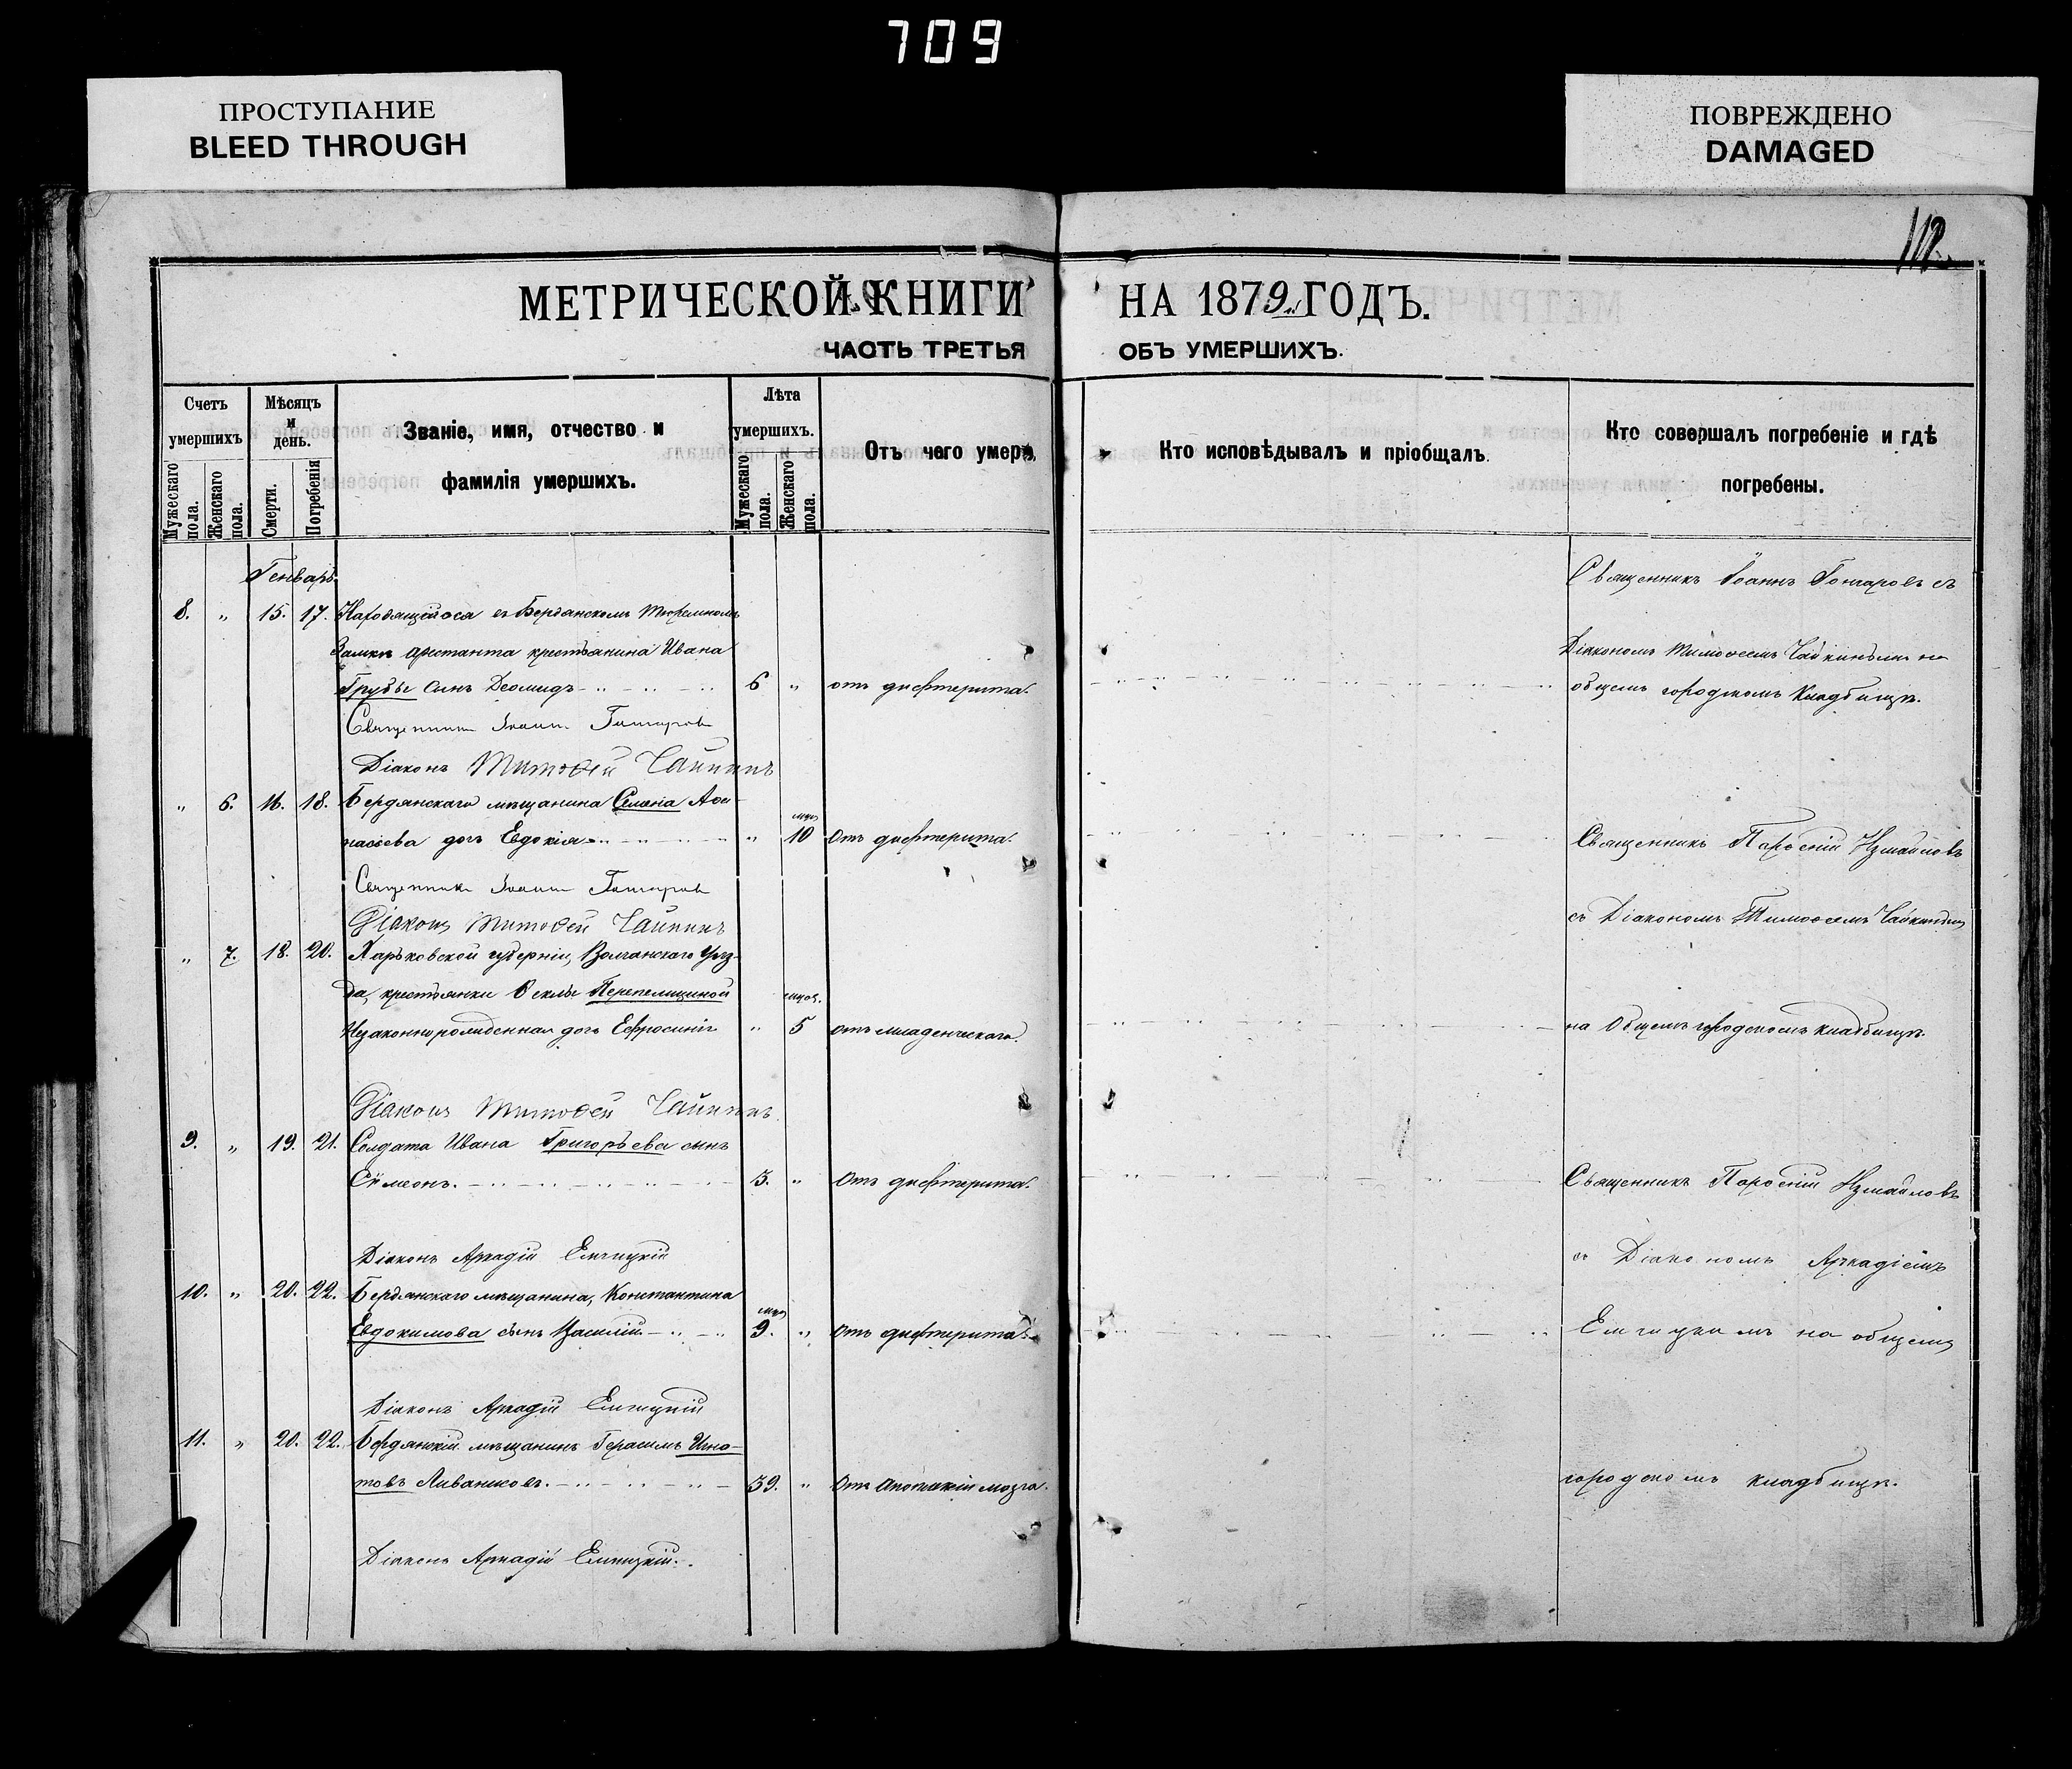 709
ПРОСТУПАНИЕ
BLEED THROUGH
ПОВРЕЖДЕНО
DAMAGED
112.
МЕТРИЧЕСКОЙ КНИГИ НА 1879 ГОДЪ.
ЧАСТЬ ТРЕТЬЯ ОБЪ УМЕРШИХЪ.
Счетъ умершихъ
Мужескаго пола.
Женскаго пола.
Мѣсяцъ и день.
Смерти.
Погребенія
Званіе, имя, отчество и фамилія умершихъ.
Лѣта умершихъ.
Мужескаго пола.
Женскаго пола.
Отъ чего умеръ.
Кто исповѣдывалъ и пріобщалъ.
Кто совершалъ погребеніе и гдѣ погребены.
Генварь
Священникъ Іоаннъ Гончаровъ съ
8. „ 15. 17. Находящійося въ Бердянскомъ Тюремномъ
Замкѣ арестанта крестьянина Ивана
Діакономъ Тимоѳеемъ Чайкинымъ на
Грубы сынъ Деомидъ 6 „ отъ дифтерита.
общемъ городскомъ Кладбищѣ.
Священникъ Іоаннъ Гончаровъ
Діаконъ Тимоѳей Чайкинъ
„ 6. 16. 18. Бердянскаго мѣщанина Семена Аѳа-
насьева дочь Евдокія „ мѣс 10 Отъ дифтерита.
Священникъ Парѳеній Измайловъ
Священникъ Іоаннъ Гончаровъ
Діаконъ Тимоѳей Чайкинъ
съ Діакономъ Тимоѳеемъ Чайкинымъ
„ 7. 18. 20. Харьковской губерніи, Волчанскаго Уѣз-
да, крестьянки Ѳеклы Перепелициной
Незаконнорожденная дочь Ефросинія „ мѣся. 5 отъ младенческаго.
на Общемъ городскомъ кладбищѣ.
Діаконъ Тимоѳей Чайкинъ
9. „ 19. 21. Солдата Ивана Григорьева сынъ
Сѵмеонъ. 3. „ Отъ дифтерита.
Священникъ Парѳеній Измайловъ
Діаконъ Аркадій Емчицкій
съ Діакономъ Аркадіемъ
10. „ 20. 22. Бердянскаго мѣщанина, Константина
Евдокимова сынъ Василій мѣс 9. „ Отъ дифтерита.
Емчицкимъ на общемъ
Діаконъ Аркадій Емчицкій
11. „ 20. 22. Бердянскій мѣщанинъ Герасимъ Игна-
товъ 39. „ Отъ мозга.
городскомъ кладбищѣ.
Діаконъ Аркадій Емчицкій.